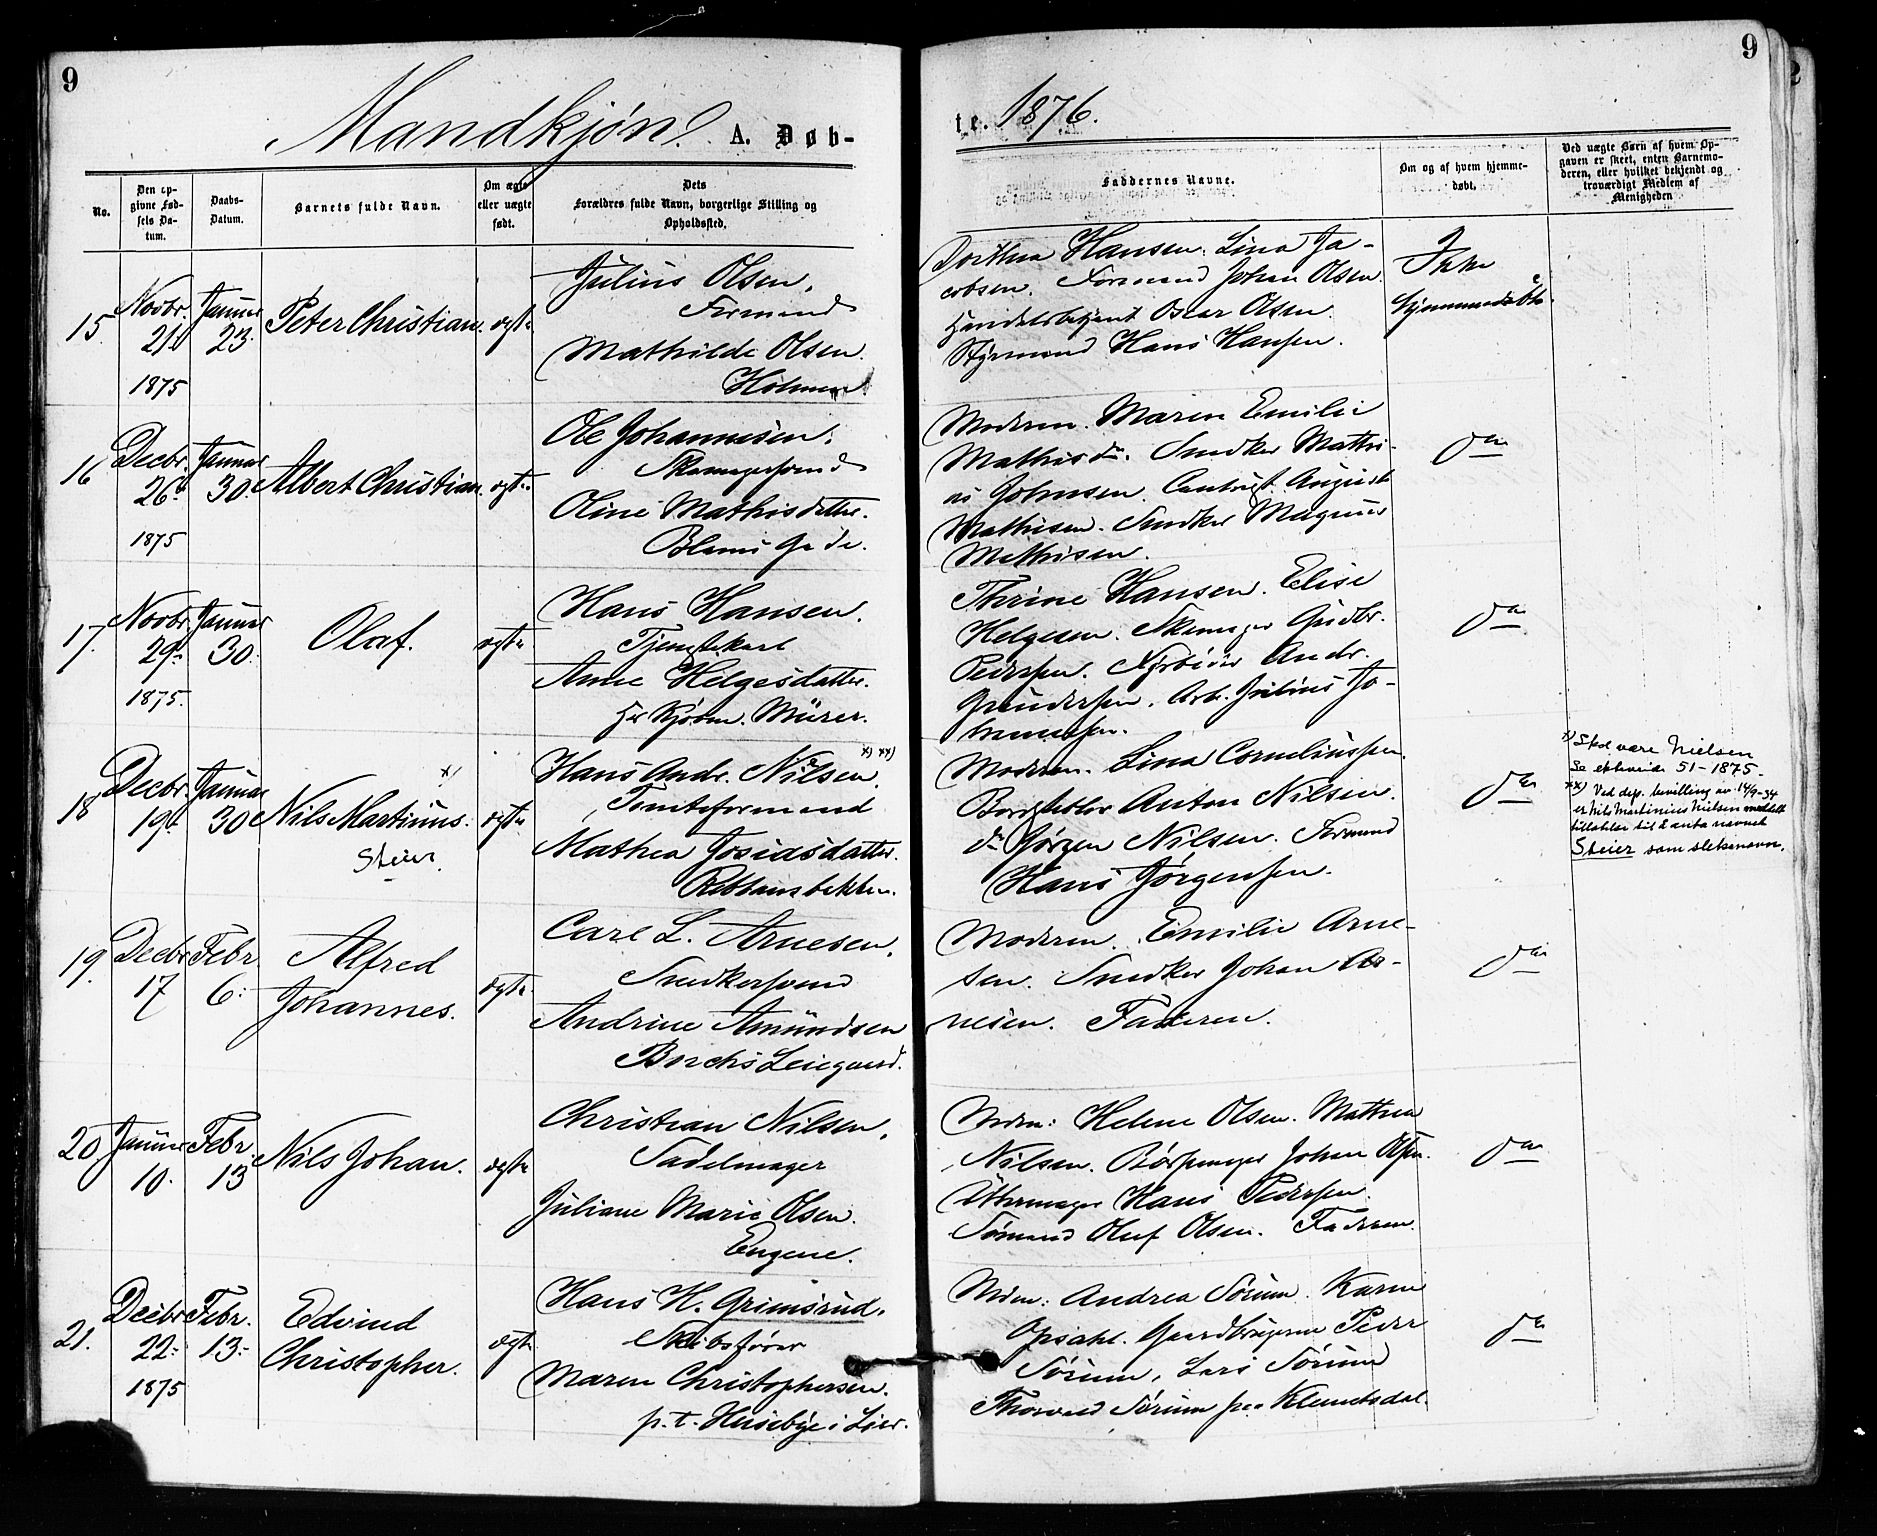 9
Mandkjøn. A. Døb-
No.
Den opgivne Fødsels Datum.
Daabs-Datum.
Barnets fulde Navn.
Om ægte eller uægte født.
Dets Forældres fulde Navn, borgerlige Stilling og Opholdssted.
15
Novbr. 21. 1875
Januar 23.
Peter Christian.
ægte
Julius Olsen,
Formand
Mathilde Olsen.
Holmen
16
Decbr. 26. 1875
Januar 30.
Albert Christian.
ægte
Ole Johannesen.
Skomagersvend
Oline Mathisdatter.
17.
Novbr. 29. 1875.
Januar 30.
Olaf.
ægte
Hans Hansen.
Tjenestekarl
Anne Helgesdatter.
18
Decbr. 19.
Januar 30
Nils Martinius. x)
Steier.
ægte
Hans Andr. Nilsen. x) xx)
Tomteformand
Mathea Josiasdatter.
Rebbansbakken.
19.
Decbr 17
Febr. 6.
Alfred
Johannes.
ægte.
Carl L. Arnesen.
Snedkersvend
Andrine Amundsen
Buchs Leiegaard.
20
Januar 10.
Febr. 13
Nils Johan.
ægte
Christian Nilsen.
Sadelmager
Juliane Marie Olsen.
Engene.
21.
Decbr 22. 1875
Febr. 13.
Edvind
Christopher.
ægte.
Hans H. Grimsrud.
Skibsfører
Maren Christophersen.
p.t. Husebye i Lier.
9
te. 1876.
Faddernes Navne.
Om og af hvem hjemmedøbt.
Ved uægte Børn af hvem Opgaven er skeet, enten Barnemoderen, eller hvilket bekjendt og troværdigt Medlem af Menigheden
Dorthea Hansen. Lina Ja-
cobsen. Formand Johan Olsen.
Handelsbetjent Oscar Olsen.
Styrmand Hans Hansen.
Ikke
hjemmedøbt.
Moderen. Maren Emilie
Mathisd. Snedker Mathi-
as Johnsen. August
Mathisen. Snedker Magnus
Mathisen.
do
Thrine Hansen. Elise
Helgesen. Skomager Gudbr.
Pedersen. Andr.
Gundersen. Arb. Julius Jo-
hannesen.
do
Moderen. Lina Corneliussen.
Anton Nilsen.
do Jørgen Nilsen. Formand
Hans Jørgensen.
do
x) Skal være Nielsen
Se 51-1875.
xx) Ved dep. bevilling av 14/9-34
er Nils Martinius Nielsen meddelt
tillatelse til å anta navnet
Steier som slektsnavn.
Moderen. Emilie Arne-
sen. Snedker Johan Ar-
nesen. Faderen.
do
Mdrn: Helene Olsen. Mathea
Nilsen. Børsemager Johan Olsen.
Uhrmager Hans Pedersen.
Sømand Oluf Olsen. Faderen.
do
Mdrn: Andrea Sørum. Karen
Opsahl. Gaardbrugerne Peder
Sørum, Lars Sørum
Thorvald Sørum paa Klemetsdal.
do